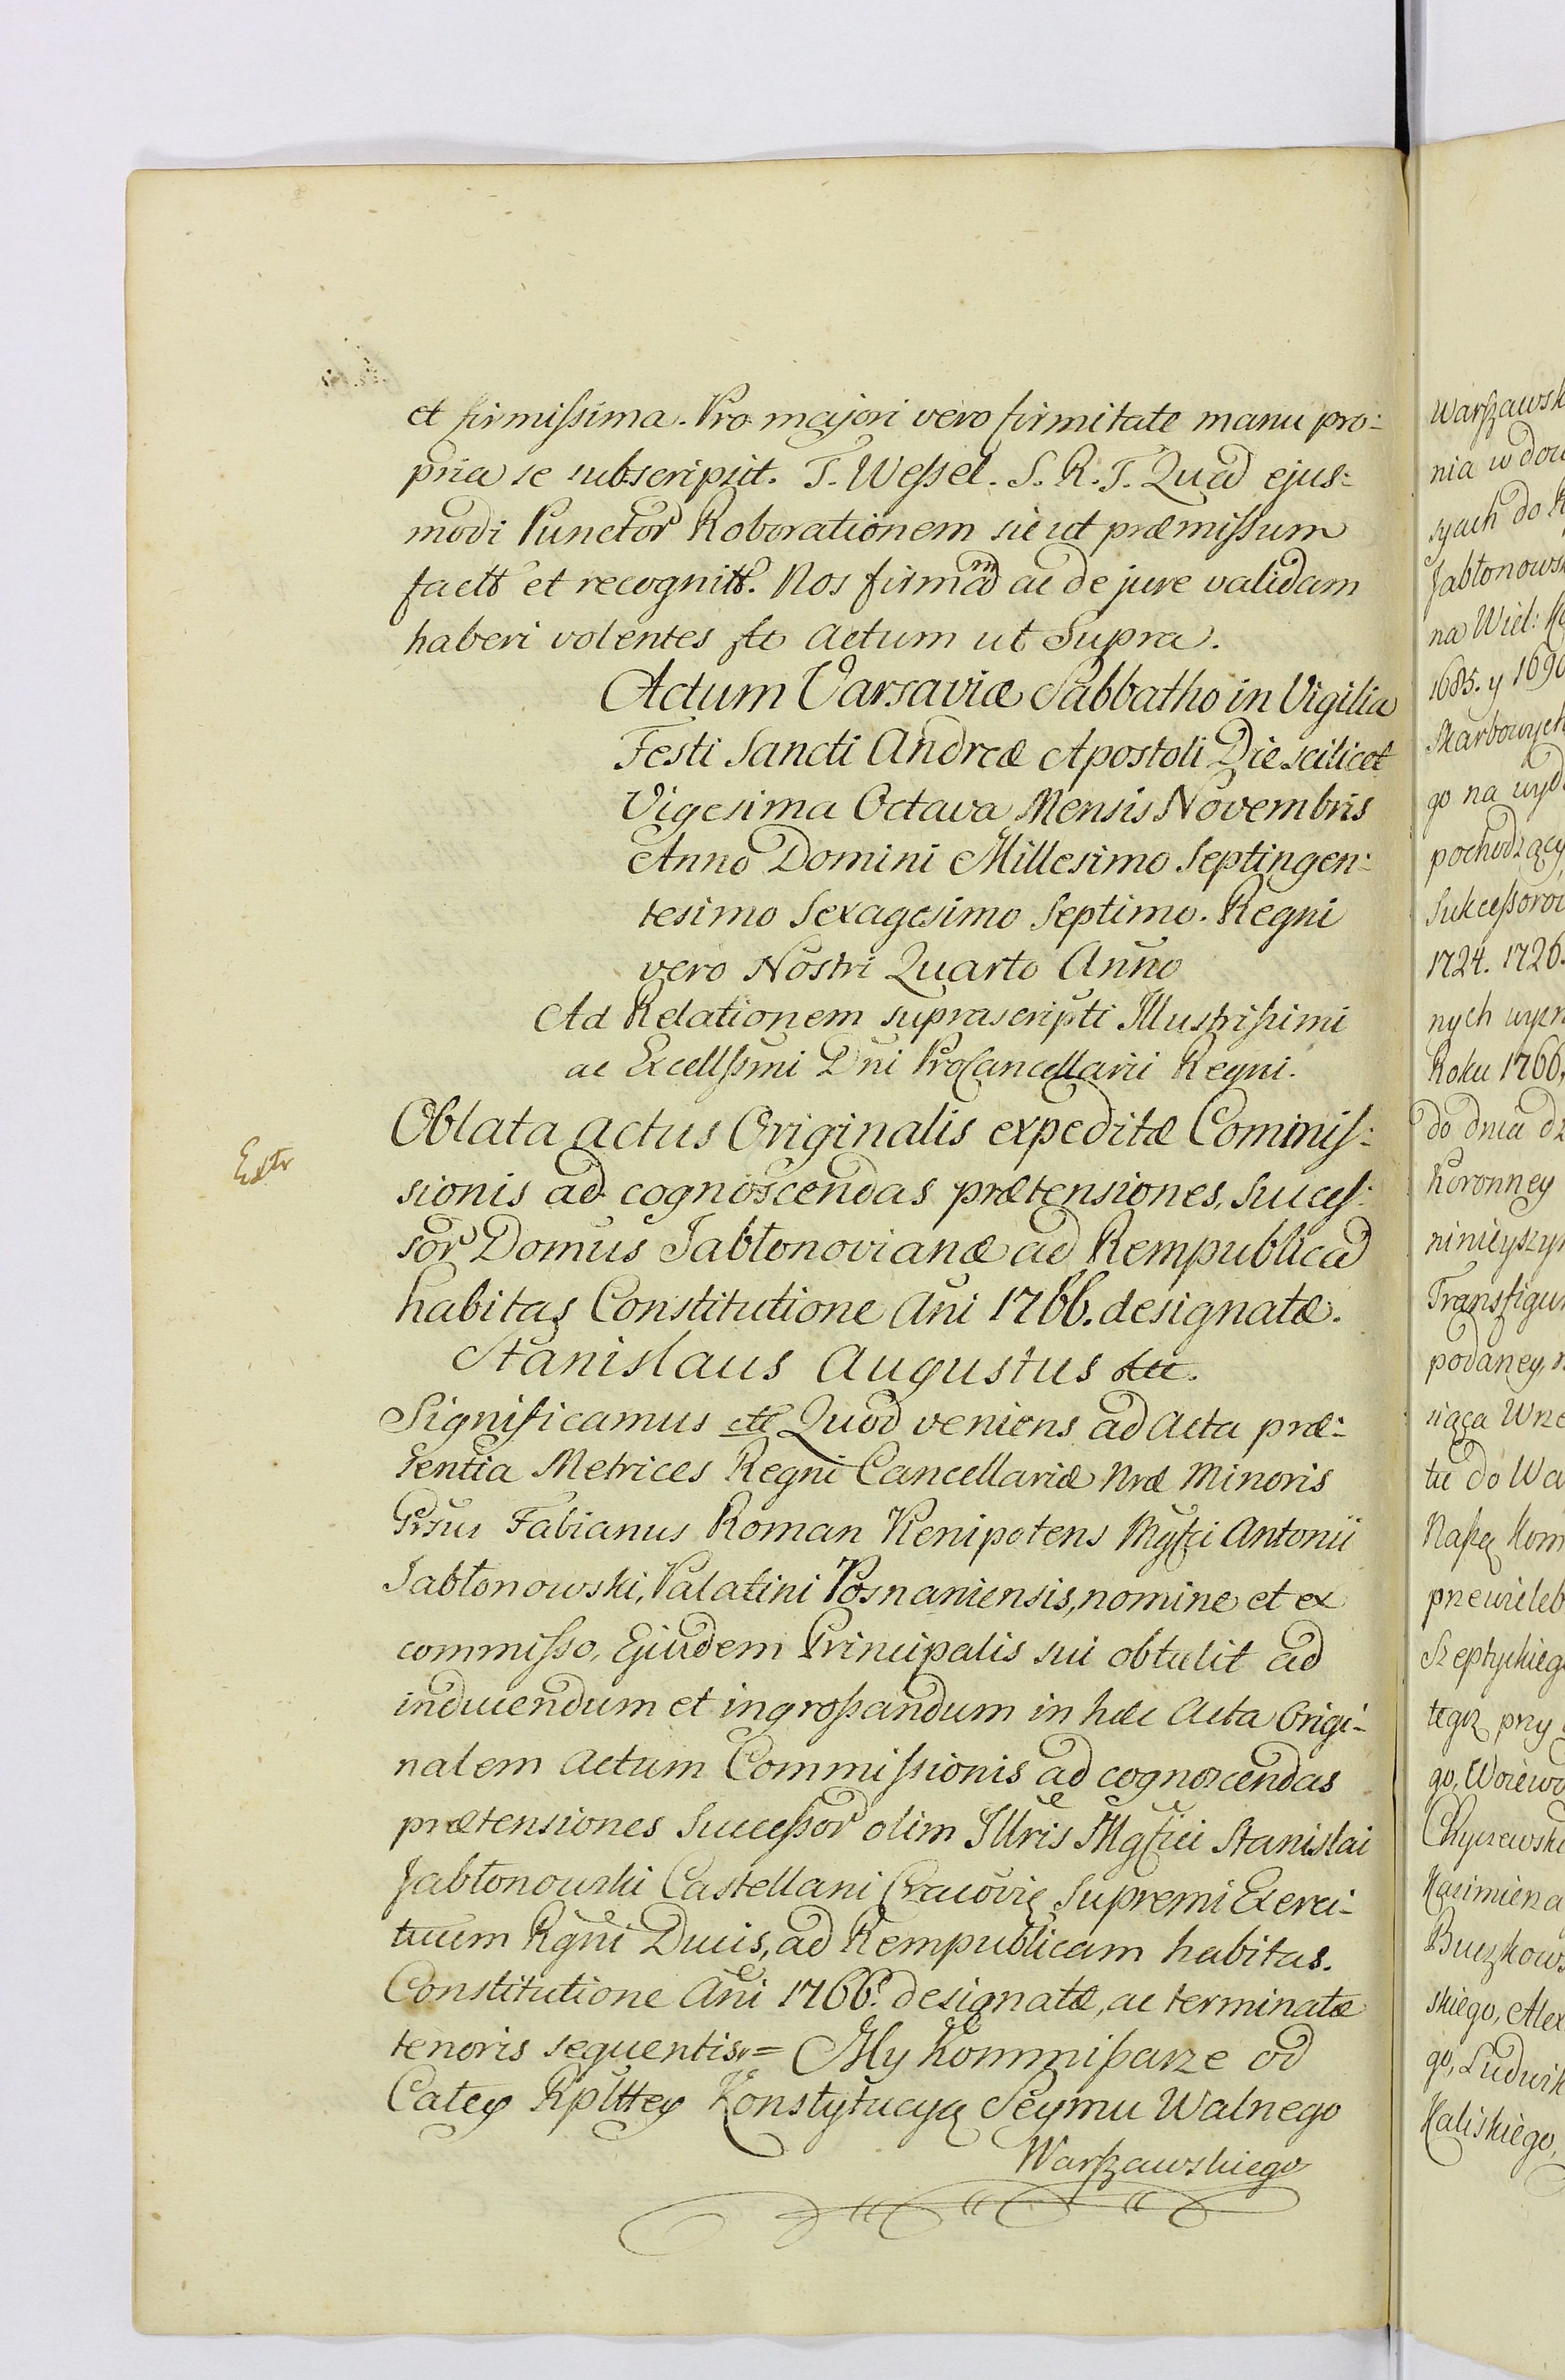 et firmissima. Pro majori vero firmitate manu pro:
pria se subscripsit. T. Wessel. S. R. T. Quad ejus:
modi Punctor Roborationem sicut præmissum
factt et recognitt. Nos firmad ac de jure validam
haberi volentes etc Actum ut Supra.
Actum Varsaviæ Sabbatho in Vigilia
Festi Sancti Andreæ Apostoli Die scilicet
Vigesima Octava Mensis Novembris
Anno Domini Millesimo Septingen:
tesimo Sexagesimo Septimo. Regni
vero Nostri Quarto Anno
Ad Relationem suprascripti Illustrissimi
ac Excellssmi Dni ProCancellarii Regni.
Extr
Oblata actus Originalis expeditæ Commis:
sionis ad cognoscendas prætensiones, succes:
sor Domus Jabłonovianæ ad Rempublicad
habitas Constitutione Ani 1766. designatæ.
Stanislaus Augustus etc.
Significamus etc Quod veniens ad Acta præ:
sentia Metrices Regni Cancellariæ Nræ Minoris
Grsus Fabianus Roman Plenipotens Mgfci Antonii
Jabłonowski, Palatini Posnaniensis, nomine et ex
commisso, Ejusdem Principalis sui obtulit ad
inducendum et ingrossandum in hæc Acta Origi-
nalem Actum Commissionis ad cognoscendas
prætensiones Successor olim Illris Mgfici Stanislai
Jabłonowski Castellani Cracovię Supremi Exerci-
tuum Rgni Ducis, ad Rempublicam habitas.
Constitutione Ani 1766. designatæ, ac terminatæ
tenoris sequentis. = My Kommissarze od
Całey Rplttey Konstytucyą Seymu Walnego
Warszawskiego
Warszawsk
nia w dow
syach do R
Jabłonowsk
na Wiel: 
1685. y 1690
Skarbowych
go na wyd
pochodzący
Sukcessorow
1724. 1726.
nych wyzn
Roku 1766,
do dnia dz
Koronney
ninieyszym
Transfigur
podaney, n
siąca Wrze
tu do Wa
Naszą Kom
przewieleb
Szeptyckiego
tegoz przy
go, Woiewo
Chyczewski
Kazimierza
Buczkows
skiego, Alex
go, Ludwik
Kaliskiego,